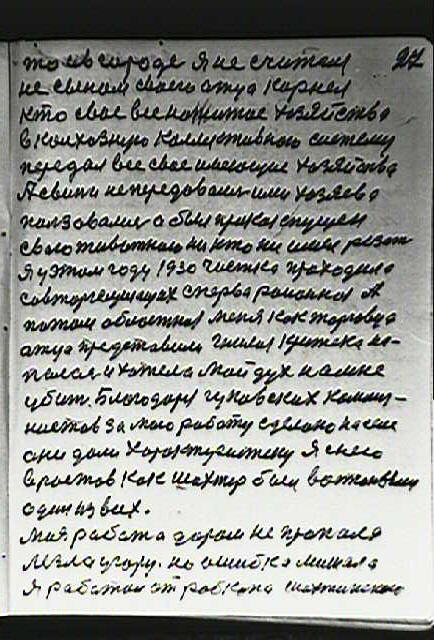 то и в городе я не считал 27
не сыном своего отца Корнея
кто свое все нажитое хозяйство
в колхозную коллективного систему
передал все свое имающие хозяйства
А свини не передовали или хозяева
ползовалис а был приказ спущен
своего животного ни кто ни имел резат
я у этом году 1930 чистка проходила
совторгслужащих сперва районная А
потом областная меня как торговца
отца представили
и хотела мой дух на мне
убит. Благодоря гуковских комму-
нистов за мою работу сделано
они дали характуристику я с нею
в ростов как шахтер был
один из всех.
моя работа даром не пропала
лезла угору. но ошибка мишала
я работал от робкопа шахтинского